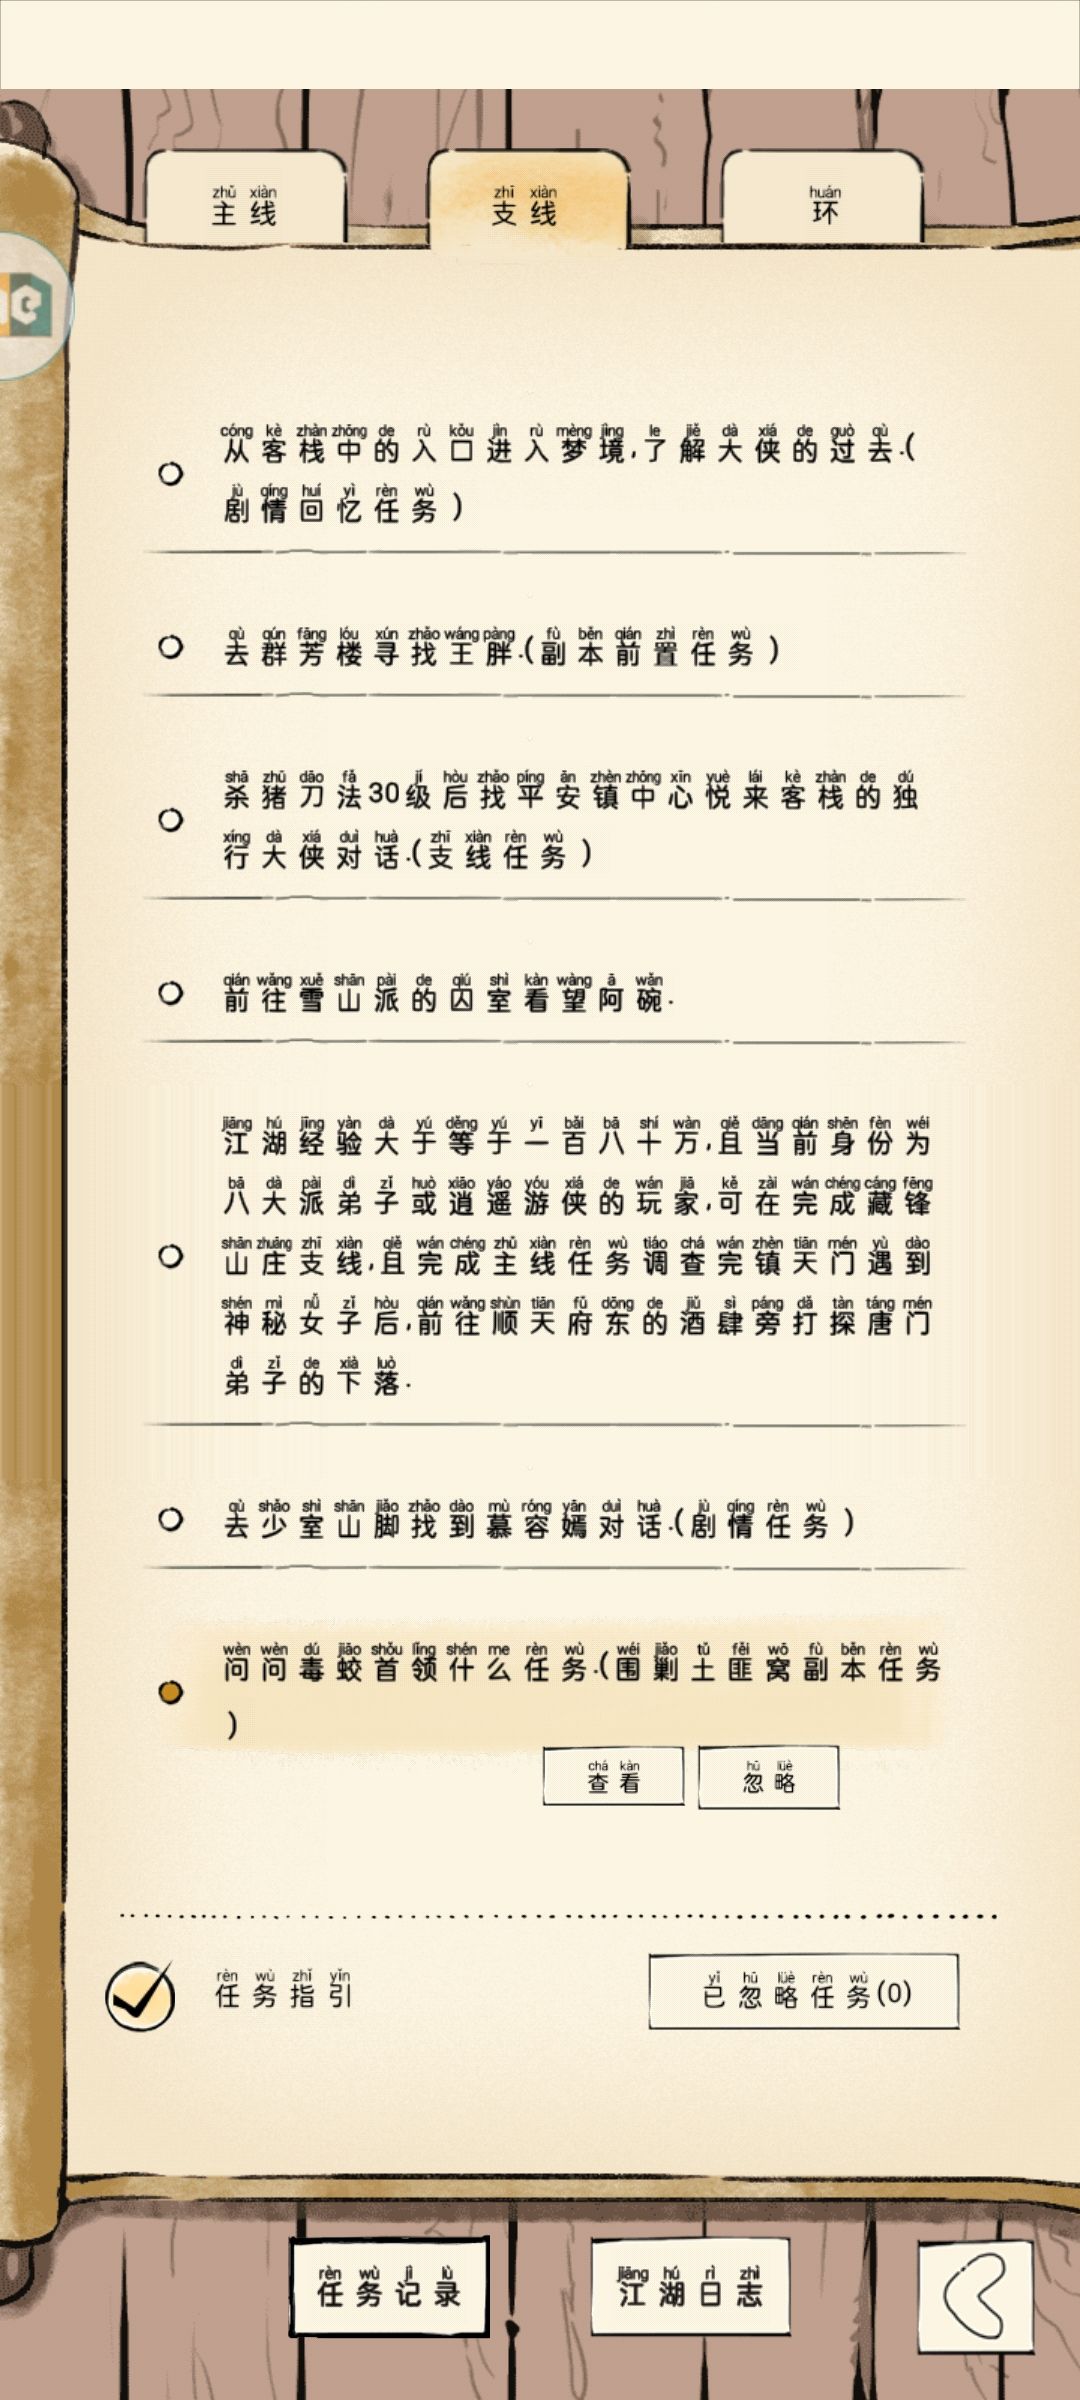 zhǔ xiàn
主线
zhī xiàn
支线
huán
环
cóng kè zhàn zhōng de rù kǒu jìn rù mèng jìng le jiě dà xiá de guò qù
从客栈中的入口进入梦境,了解大侠的过去.(
jù qíng huí yì rèn wù
剧情回忆任务)
qù qún fāng lóu xún zhǎo wáng pàng fù běn qián zhì rèn wù
去群芳楼寻找王胖.(副本前置任务)
shā zhū dāo fǎ jí hòu zhǎo píng ān zhèn zhōng xīn yuè lái kè zhàn de dú
杀猪刀法30级后找平安镇中心悦来客栈的独
xíng dà xiá duì huà zhī xiàn rèn wù
行大侠对话.(支线任务)
qián wǎng xuě shān pài de qiú shì kàn wàng ā wǎn
前往雪山派的囚室看望阿碗.
jiāng hú jīng yàn dà yú děng yú yī bǎi bā shí wàn qiě dāng qián shēn fèn wéi
江湖经验大于等于一百八十万,且当前身份为
bā dà pài dì zǐ huò xiāo yáo yóu xiá de wán jiā kě zài wán chéng cáng fēng
八大派弟子或逍遥游侠的玩家,可在完成藏锋
shān zhuāng zhī xiàn qiě wán chéng zhǔ xiàn rèn wù tiáo chá wán zhèn tiān mén yù dào
山庄支线,且完成主线任务调查完镇天门遇到
shén mì nǚ zǐ hòu qián wǎng shùn tiān fǔ dōng de jiǔ sì páng dǎ tàn táng mén
神秘女子后,前往顺天府东的酒肆旁打探唐门
dì zǐ de xià luò
弟子的下落.
qù shǎo shì shān jiǎo zhǎo dào mù róng yān duì huà jù qíng rèn wù
去少室山脚找到慕容嫣对话.(剧情任务)
wèn wèn dú jiāo shǒu lǐng shén me rèn wù wéi jiǎo tǔ fěi wō fù běn rèn wù
问问毒蛟首领什么任务.(围剿土匪窝副本任务
)
chá kàn
查看
hū lüè
忽略
rèn wù zhǐ yǐn
任务指引
yǐ hū lüè rèn wù
已忽略任务(0)
rèn wù jì lù
任务记录
jiāng hú rì zhì
江湖日志